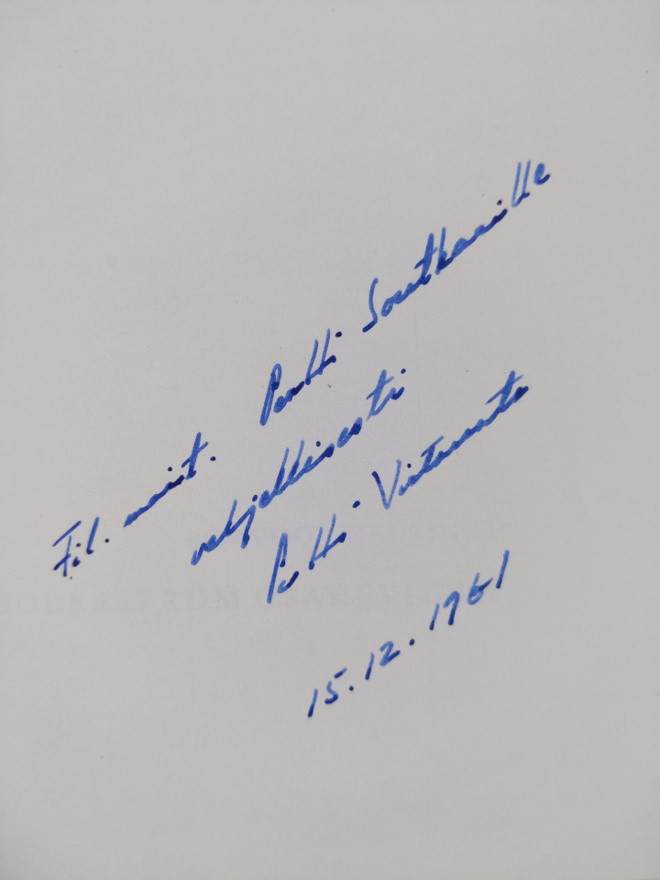 Fil. maist. Pentti Soutkarille
veljellisesti
Pertti Virtaranta
15.12.1961